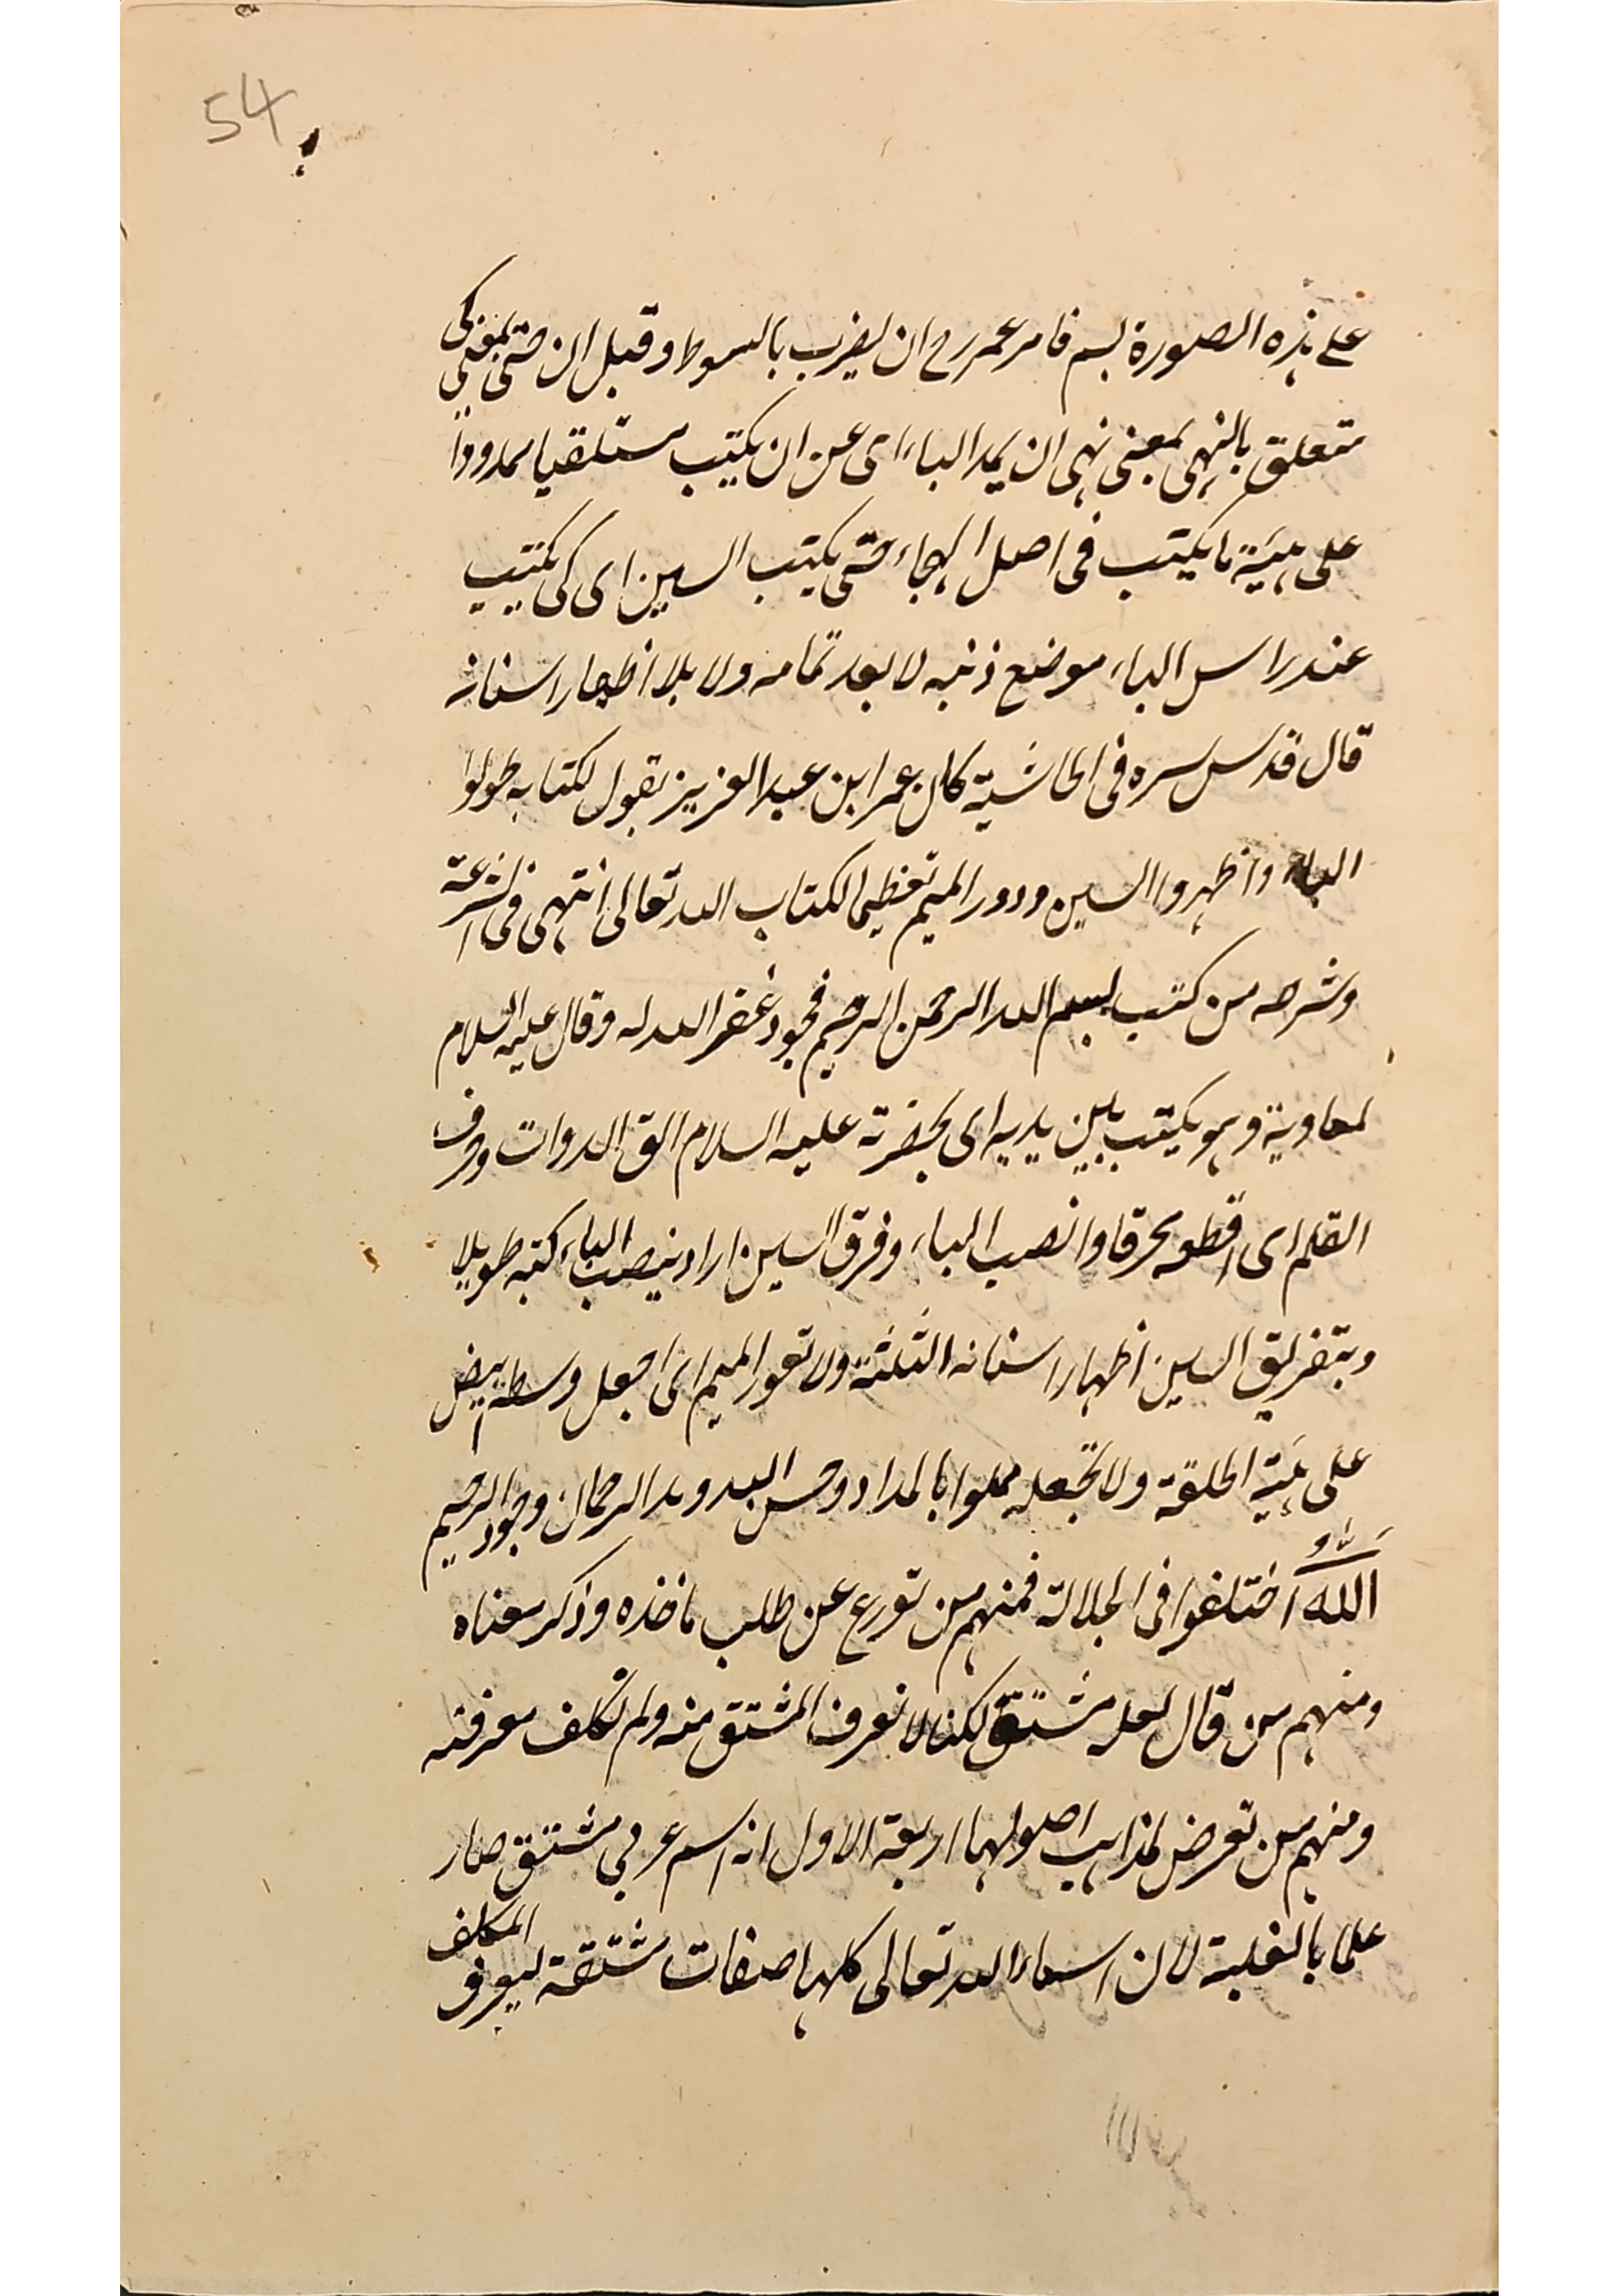 54
على هذه الصورة بسم فامر عمر رح ان يضرب بالسوط وقيل ان حتى بمعنى كى
متعلق بالنهى بمعنى نهى ان يمد الباء اى عن ان يكتب مستلقيا ممدوداً
على هيئة ما يكتب فى اصل الهجاء حتى يكتب السين اى كى يكتب
عند راس الباء موضع ذنبه لا بعد تمامه ولا بلا اظهار اسنانه
قال قدس سره فى الحاشية كان عمر ابن عبد العزيز يقول لكتابه طولوا
الباء واظهروا السين ودور الميم تعظيما لكتاب الله تعالى انتهى فى الشرعة
وشرحه من كتب بسم الله الرحمن الرحيم فجود غفر الله له وقال عليه السلام
لمعاوية وهو يكتب بين يديه اى بحضرته عليه السلام الق الدوات وحرف
القلم اى اقطعه محرفا وانصب الباء وفرق السين اراد بنصب الباء كتبه طويلا
وبتفريق السين اظهار اسنانه الثلثة ولا تعور الميم اى اجعل وسطه ابيض
على هيئة الحلقة ولا تجعله مملوا بالمداد وحسن الله ومد الرحمان وجود الرحيم
الله اختلفوا فى الجلالة فمنهم من تورع عن طلب ماخذه وذكر معناه
ومنهم من قال لعله مشتق لكنا لا نعرف المشتق منه ولم نكلف معرفته
ومنهم من تعرض لمذاهب اصولها اربعة الاول انه اسم عربي مشتق صار
علما بالغلبة لان اسماء الله تعالى كلها صفات مشتقة ليعرف المكلف